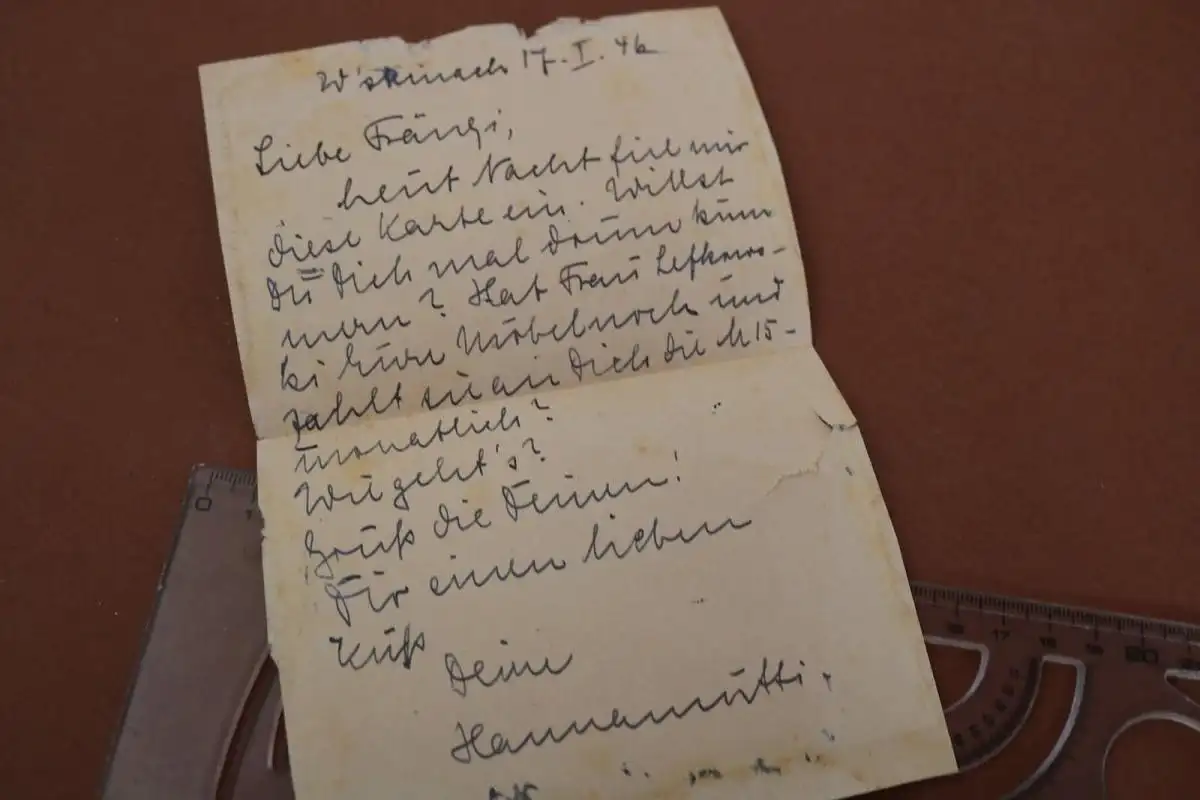 W'steinach 17.I.46
Liebe Fränzi,
heut Nacht fiel mir
diese Karte ein. Willst
Du Dich mal drum küm
mern? Hat Frau Lefkows-
ki Eure Möbel noch und
zahlt sie an Dich die M 15-
monatlich?
Wie geht's?
Grüß die Deinen!
Dir einen lieben
Kuß
Deine
Hannamutti.